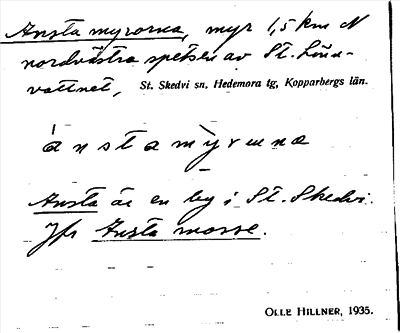 Ansta myrorna, myr 1,5 km N
nordvästra spetsen av St. Lån-
vattnet, St. Skedvi sn, Hedemora tg, Kopparbergs län.
ànstamỳrưnɑ
Ansta är en by i St. Skedvi.
Jfr Ansta mosse.
OLLE HILLNER, 1935.